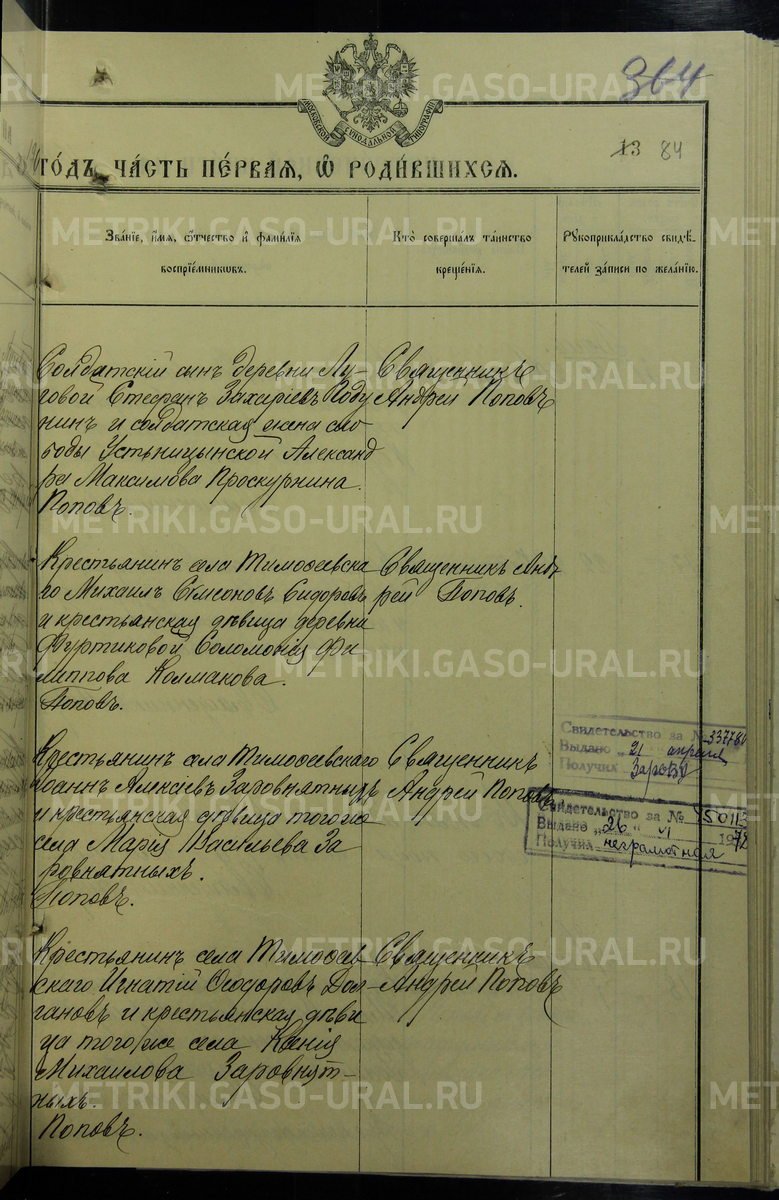 364
МОСКОВСКОЙ СѴНОДАЛЬНОЙ ТИПОГРАФІИ
13 84
ГО́ДЪ, ЧА́СТЬ ПЕ́РВАЯ, Ѽ РОДИ́ВШИХСЯ.
Зва́ніе, и́мя, ѻ҆́тчество и҆ фами́лія
воспріе́мниковъ.
Кто̀ соверша́лъ та́инство
креще́нія.
Рꙋкоприкла́дство свидѣ́-
телей за́писи по жела́нію.
Солдатскій сынъ деревни Лу-
говой Стефанъ Захаріевъ Году
нинъ и солдатская жена сло
боды Устьницынской Александ
ра Максимова Проскурнина.
Поповъ.
Священникъ
Андрей Поповъ
Крестьянинъ села Тимофеевска
го Михаилъ Симеоновъ Сидоровъ
и крестьянская дѣвица деревни
Фуртиковой Соломонія Фи
липпова Колмакова.
Поповъ.
Священникъ Анд
рей Поповъ.
Крестьянинъ села Тимофеевскаго
Іоаннъ Алексіевъ Заровнятныхъ
и крестьянская дѣвица того же
села Марія Васильева За
ровнятныхъ.
Поповъ.
Священникъ
Андрей Поповъ
Свидетельство за №
Выдано „21 апреля
Получил
Свидетельство за №
Выдано „26" VI 1972
Получил неграмотная
Крестьянинъ села Тимофеев
скаго Игнатій Ѳеодоровъ Дол-
гановъ и крестьянская дѣви
ца того же села Ксенія
Михаилова Заровнят-
ныхъ.
Поповъ.
Священникъ
Андрей Поповъ
METRIKI.GASO-URAL.RU